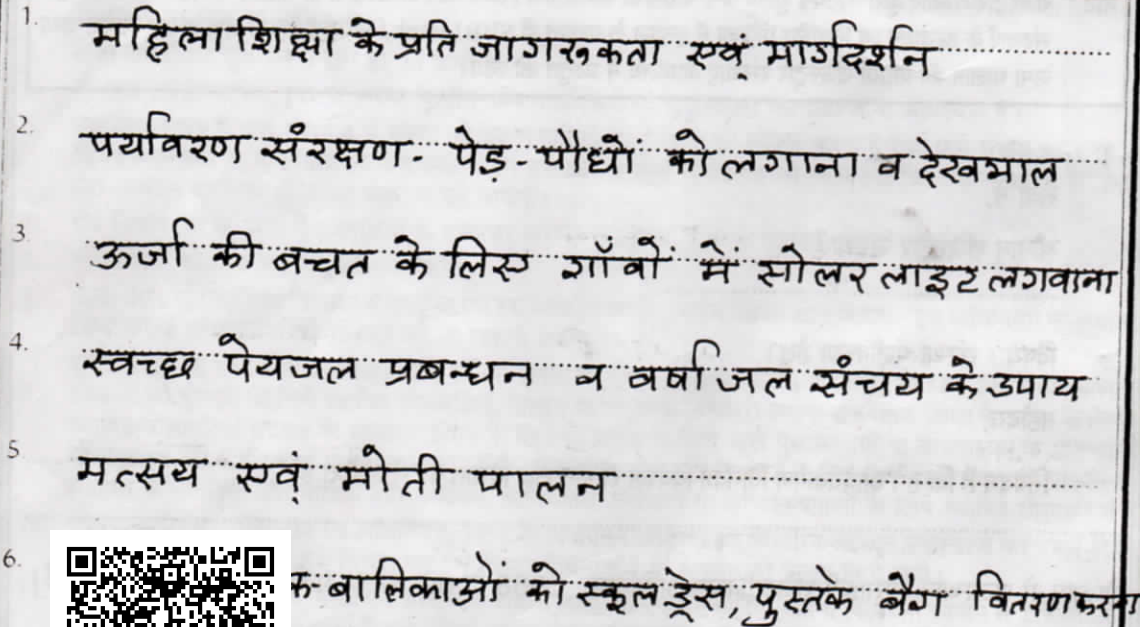 1. महिला शिक्षा के प्रति जागरूकता एवं मार्गदर्शन
2. पर्यावरण संरक्षण - पेड़ - पौधों को लगाना व देखभाल
3. ऊर्जा की बचत के लिए गाँवों में सोलर लाइट लगवाना
4. स्वच्छ पेयजल प्रबन्धन व वर्षा जल संचय के उपाय
5 मत्सय एवं मोती पालन
6. क-बालिकाओं को स्कूल ड्रेस, पुस्तके बैग वितरण करना